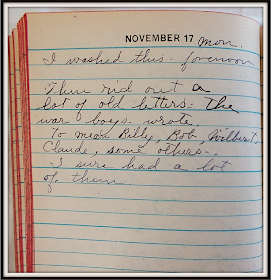 NOVEMBER 17 Mon.
I washed this forenoon
Then rid out a
lot of old letters - the
war boys wrote.
To mean Billy, Bob, Wilbert,
Claude, some others -
I sure had a lot
of them.